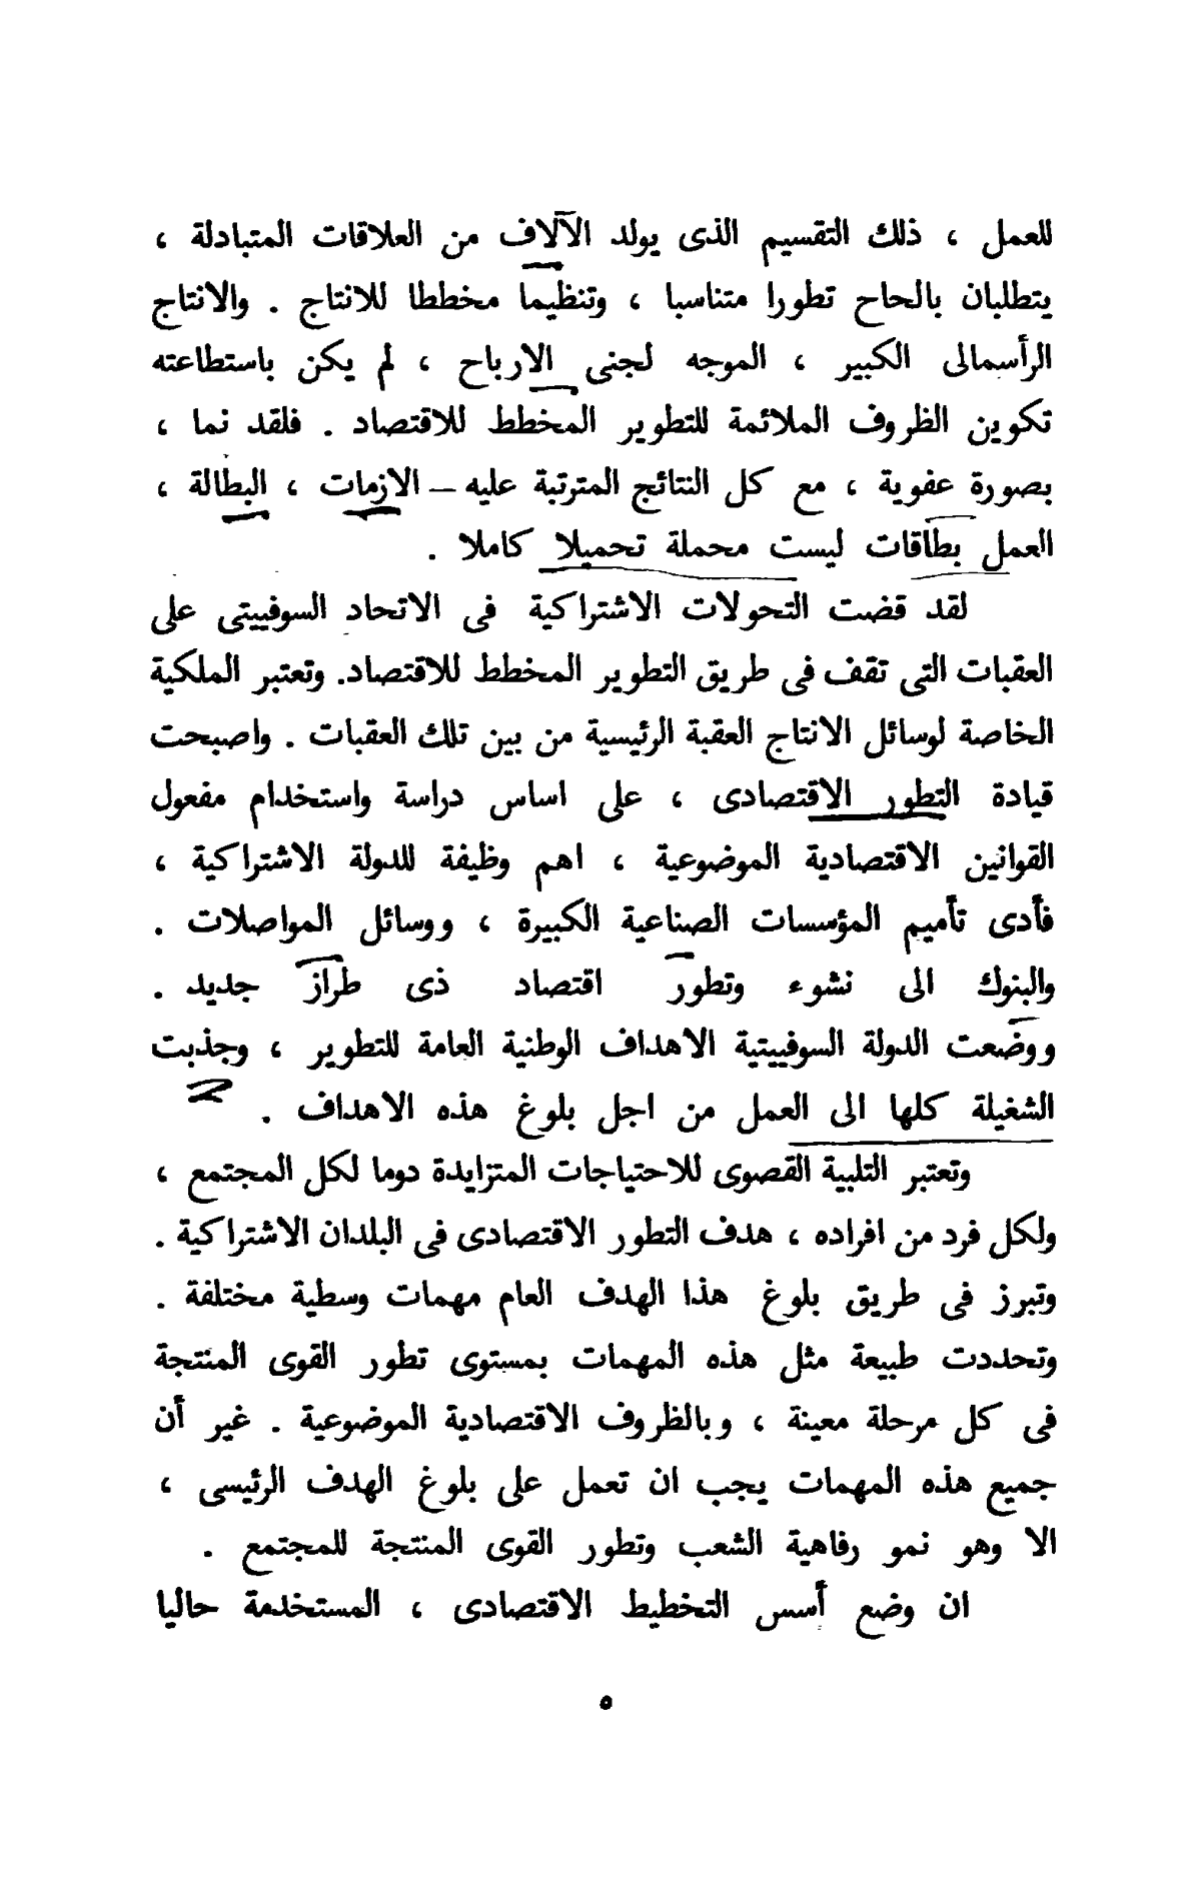 للعمل ، ذلك التقسيم الذى يولد الآلاف من العلاقات المتبادلة ،
يتطلبان بالحاح تطورا متناسبا ، وتنظيما مخططا للانتاج . والانتاج
الرأسمالى الكبير ، الموجه لجنى الارباح ، لم يكن باستطاعته
تكوين الظروف الملائمة للتطوير المخطط للاقتصاد . فلقد نما ،
بصورة عفوية ، مع كل النتائج المترتبة عليه – الازمات ، البطالة ،
العمل بطاقات ليست محملة تحميلا كاملا .
لقد قضت التحولات الاشتراكية فى الاتحاد السوفييتى على
العقبات التى تقف فى طريق التطوير المخطط للاقتصاد. وتعتبر الملكية
الخاصة لوسائل الانتاج العقبة الرئيسية من بين تلك العقبات . واصبحت
قيادة التطور الاقتصادى ، على اساس دراسة واستخدام مفعول
القوانين الاقتصادية الموضوعية ، اهم وظيفة للدولة الاشتراكية ،
فأدى تأميم المؤسسات الصناعية الكبيرة ، ووسائل المواصلات .
والبنوك الى نشوء وتطور اقتصاد ذى طراز جديد .
ووضعت الدولة السوفييتية الاهداف الوطنية العامة للتطوير ، وجذبت
الشغيلة كلها الى العمل من اجل بلوغ هذه الاهداف .
وتعتبر التلبية القصوى للاحتياجات المتزايدة دوما لكل المجتمع ،
ولكل فرد من افراده ، هدف التطور الاقتصادى فى البلدان الاشتراكية .
وتبرز فى طريق بلوغ هذا الهدف العام مهمات وسطية مختلفة .
وتحددت طبيعة مثل هذه المهمات بمستوى تطور القوى المنتجة
فى كل مرحلة معينة ، وبالظروف الاقتصادية الموضوعية . غير أن
جميع هذه المهمات يجب ان تعمل على بلوغ الهدف الرئيسى ،
الا وهو نمو رفاهية الشعب وتطور القوى المنتجة للمجتمع .
ان وضع أسس التخطيط الاقتصادى ، المستخدمة حاليا
٥